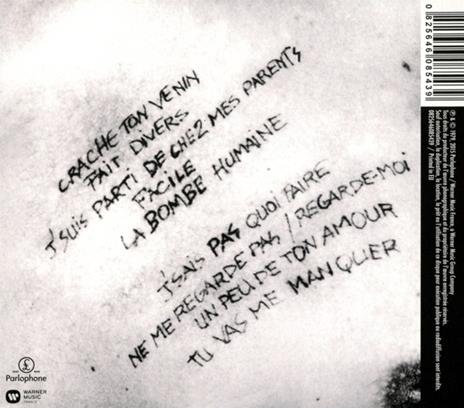 CRACHE TON VENIN
FAIT DIVERS
J'SUIS PARTI DE CHEZ MES PARENTS
FACILE
LA BOMBE HUMAINE
J'SAIS PAS QUOI FAIRE
NE ME REGARDE PAS / REGARDE-MOI
UN PEU DE TON AMOUR
TU VAS ME MANQUER
Parlophone
WARNER MUSIC
0 825646 085439
℗ & © 1979, 2015 Parlophone / Warner Music France, a Warner Music Group Company
Tous droits du producteur de l'œuvre phonographique et du propriétaire de l'œuvre enregistrée réservés.
Sauf autorisation, la duplication, la location, le prêt ou l'utilisation de ce disque pour exécution publique ou radiodiffusion sont interdits.
0825646085439 / Printed in EU